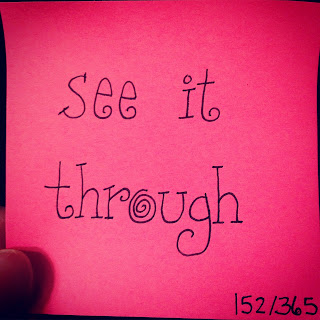 see it
through
152/365